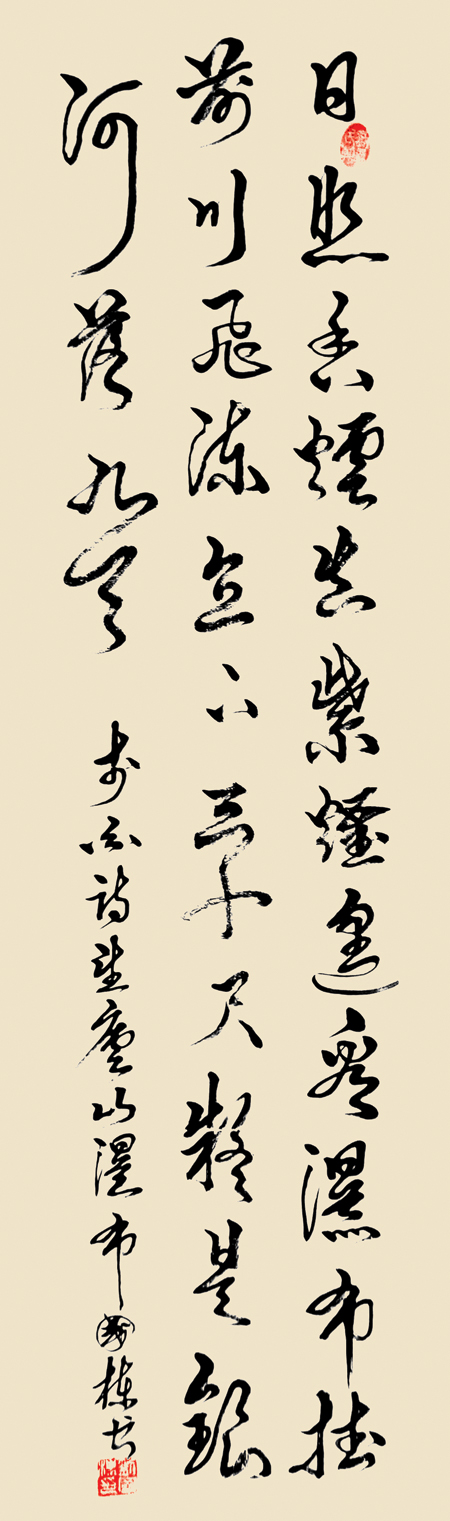 日照香爐生紫煙遙看瀑布挂
前川飛流直下三千尺疑是銀
河落九天 李白詩望廬山瀑布國棟書